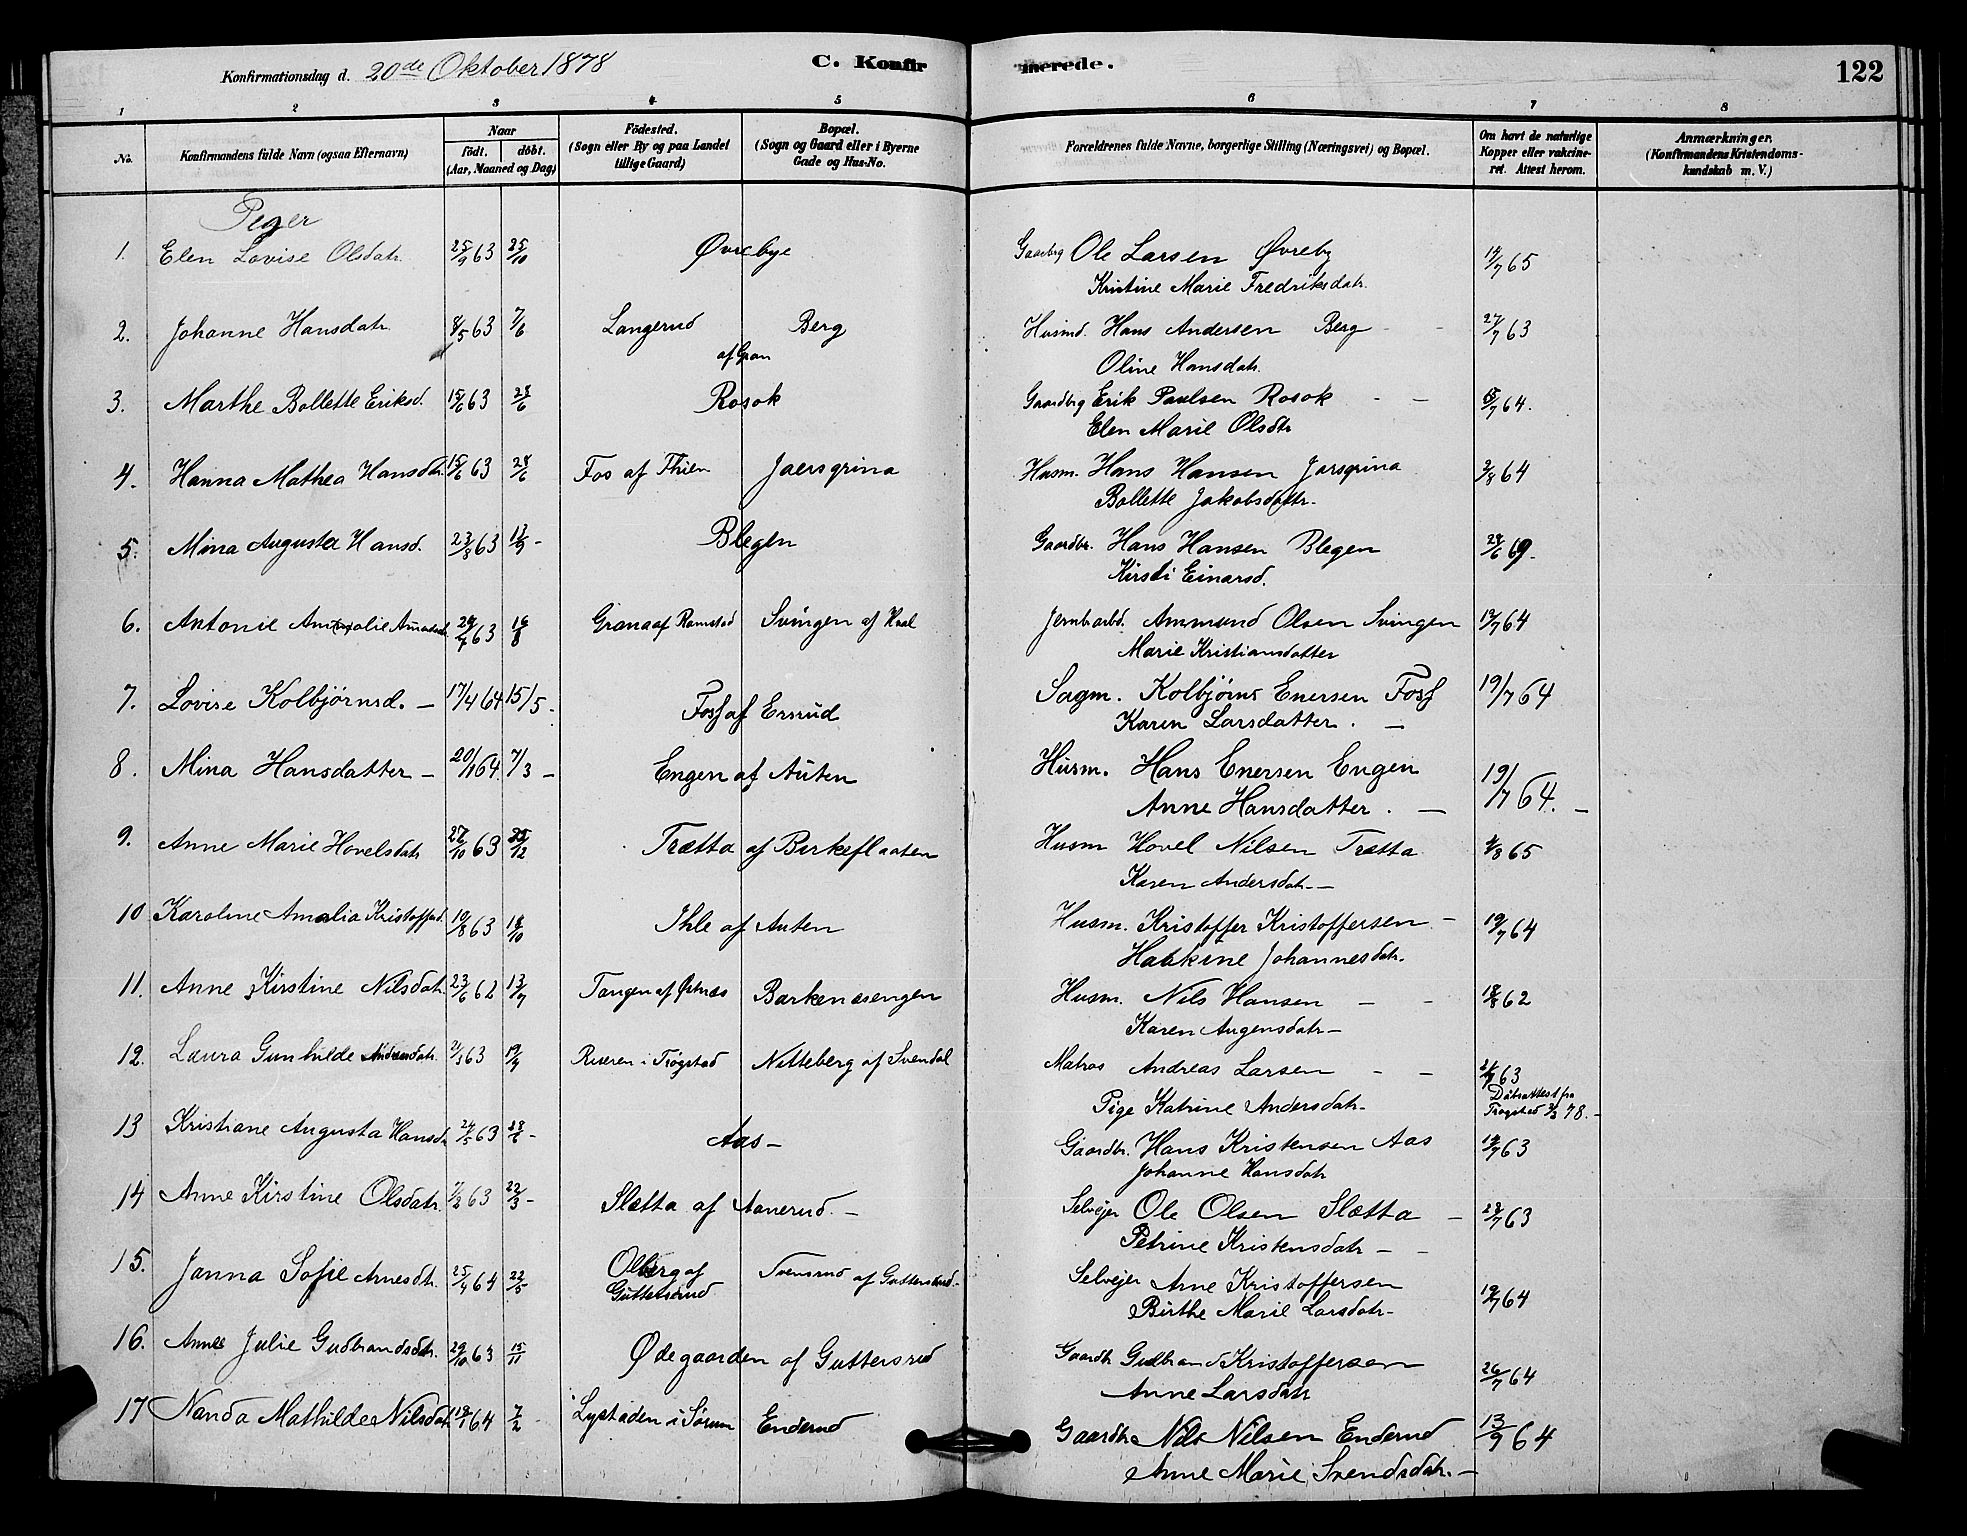 Konfirmationsdag d. 20de Oktober 1878 C. Konfir merede. 122
1 2 3 4 5 6 7 8
No. Konfirmandens fulde Navn (ogsaa Efternavn) Naar födt. döbt. (Aar, Maaned og Dag) Födested. (Sogn eller By og paa Landet tillige Gaard) Bopæl. (Sogn og Gaard eller i Byerne Gade og Hus-No. Forældrenes fulde Navne, borgerlige Stilling (Næringsvei) og Bopæl. Om havt de naturlige Kopper eller vakcineret. Attest herom. Anmærkninger. (Konfirmandens Kristendomskundskab m. V.)
Peger
1. Elen Lovise Olsdatr. 25/9 63 25/10 Øvrebye Gaardbrg Ole Larsen Øvreby 19/7 65
Kristine Marie Fredriksdatr.
2. Johanne Hansdatr. 8/5 63 7/6 Langerud af Gran Berg Husmd. Hans Andersen Berg 27/7 63
Oline Hansdatr.
3. Marthe Bollette Eriksd. 15/6 63 28/6 Rosok Gaardbrg Erik Paulsen Rosok 18/7 64.
Elen Marie Olsdtr
4. Hanna Mathea Hansdtr. 15/6 63 28/6 Fos af Thien Jaersgrina Husm. Hans Hansen Jarsgrina 3/8 64
Bollette Jakobsdattr.
5. Mina Augusta Hansd. 23/8 63 13/9 - Blegen Gaardbr. Hans Hansen Blegen 29/6 69.
Kirsti Einarsd.
6. Antonie 63 16/8 Grana af Ramstad Svingen af Hval Jernb.arbd. Ammund Olsen Svingen 19/7 64
Marie Kristiansdatter
7. Lovise Kolbjørnsd. - 17/4 64 15/5. Foss af Ersrud Sagm. Kolbjørns Enersen Foss 19/7 64
Karen Larsdatter. -
8. Mina Hansdatter - 20/1 64. 7/3 - Engen af Auten Husm. Hans Enersen Engen 19/7 64. -
Anne Hansdatter. -
9. Anne Marie Hovelsdatr 27/10 63 Trætta af Birkeflaaten Husm Hovel Nilsen Trætta 4/8 65
Karen Andersdatr. -
10 Karoline Amalia Kristoffsd. 19/8 63 18/10 Ihle af Auten Husm. Kristoffer Kristoffersen - 19/7 64
Haakine Johannesdatr.
11. Anne Kirstine Nilsdatr. 23/6 62 13/7 Tangen af Østnæs Barkenæsengen Husm. Nils Hansen - - 18/8 62
Karen Augensdatr -
12. Laura Gunhilde Andreasdatr. 2/3 63 19/4 Riseren i Trøgstad Nitteberg af Svendal Matros Andreas Larsen - - 63
Pige Katrine Andersdatr. Dåbsattest fra Trøgstad 78. -
13 Kristiane Augusta Hansdt. 24/5 63 28/6 - Aas - Gaardbr. Hans Kristensen Aas 19/7 63
Johanne Hansdatr
14 Anne Kirstine Olsdatr. 7/2 63 22/3 - Slætta af Aanerud. - Selveier Ole Olsen Slætta - 28/7 63
Petrine Kristensdatr - -
15. Janna Sofie Arnesdtr. 25/4 64 22/5 Olberg af Guttersrud Svensrud af Guttersrud. Selveier Arne Kristoffersen 19/7 64
Birthe Marie Larsdatr -
16. Anne Julie Gudbrandsdatr. 29/10 63 15/11 Ødegaarden af Guttersrud Gaardbr Gudbrand Kristoffersen 26/7 64
Anne Larsdatr
17 Nanda Mathilde Nilsdatr 18/1 64 7/2 Lystaden i Sørum Enderud Gaardbr Nils Nilsen Enderud 13/9 64
Anne Marie Svendsdatr. -